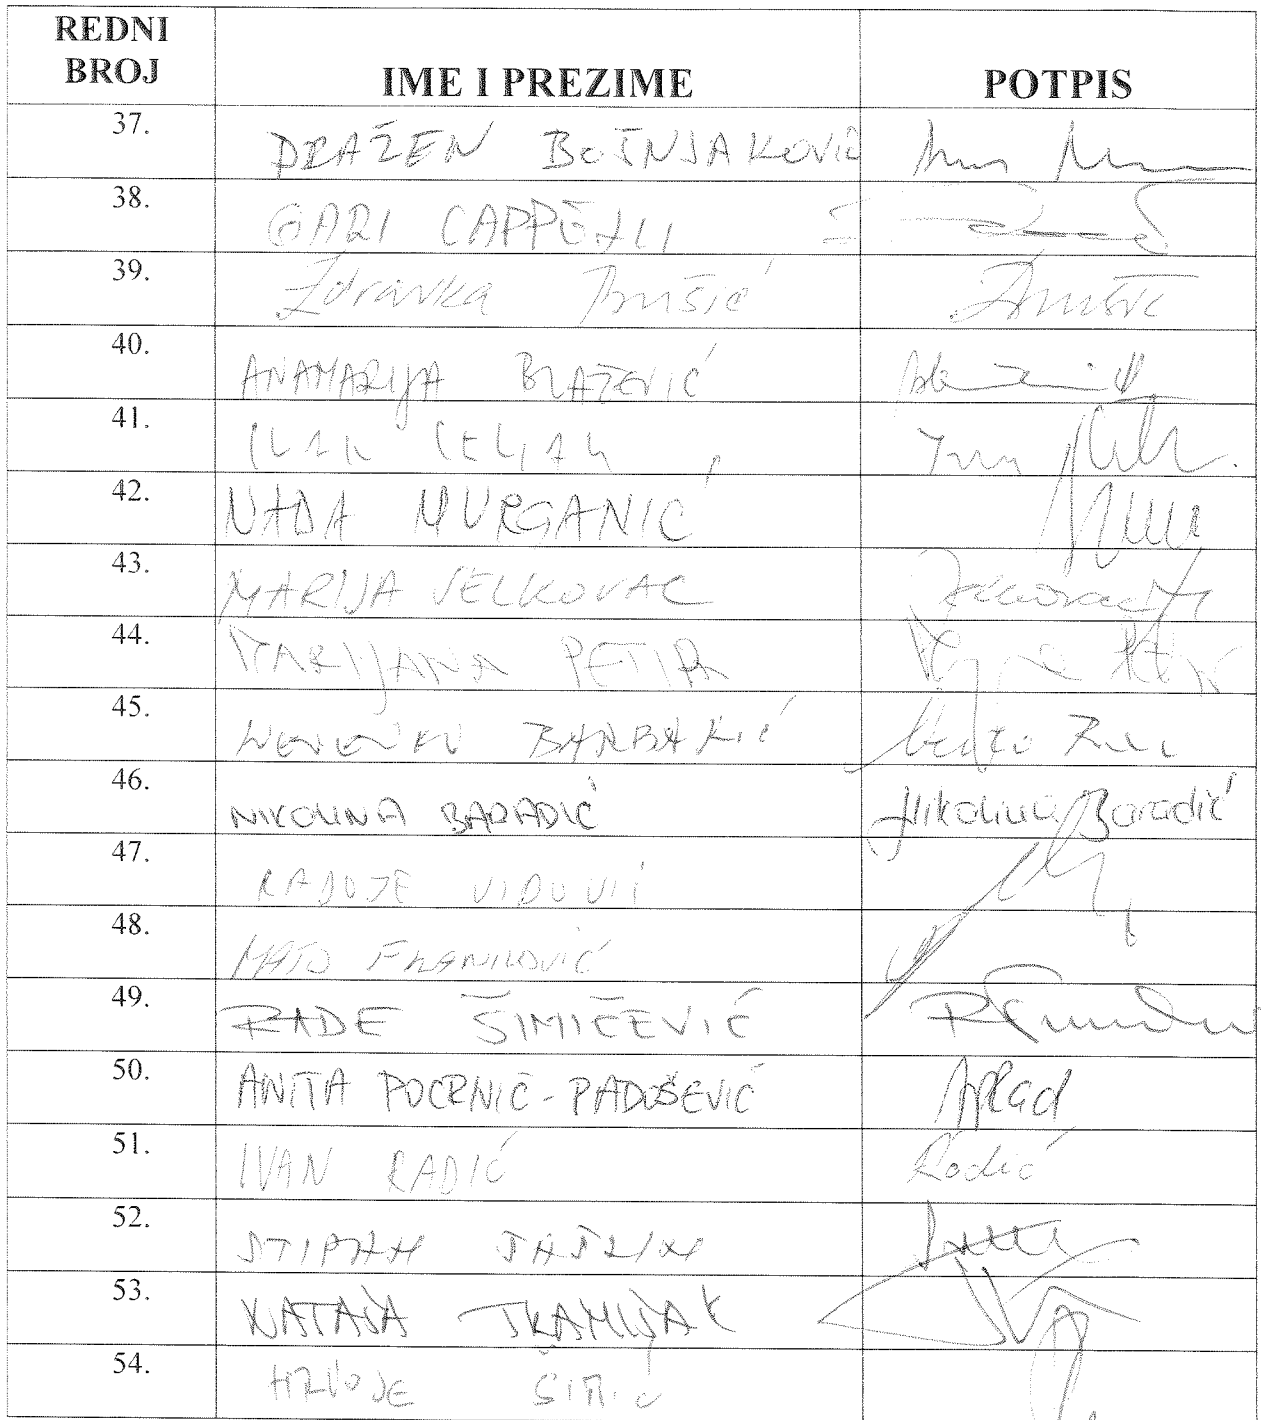 REDNI BROJ IME I PREZIME POTPIS
37. DRAŽEN BOŠNJAKOVIĆ
38. GARI CAPPELLI
39. Zdravka Bušić Bušić
40. ANAMARIJA BLAŽEVIĆ
41. IVAN CELJAK
42. NADA MURGANIĆ
43. MARIJA SELKOVAC
44. MARIJANA PETIR
45. NEVENKO BARBARIĆ
46. NIKOLINA BARADIĆ Nikolina Baradić
47. RADOJE VIDOVIĆ
48. MATO FRANKOVIĆ
49. RADE ŠIMIČEVIĆ
50. ANITA POCRNIĆ-RADOŠEVIĆ APRad
51. IVAN RADIĆ Radić
52. STIPAN ŠAŠLIN
53. NATAŠA TRAMIŠAK
54. HRVOJE ŠIMIĆ